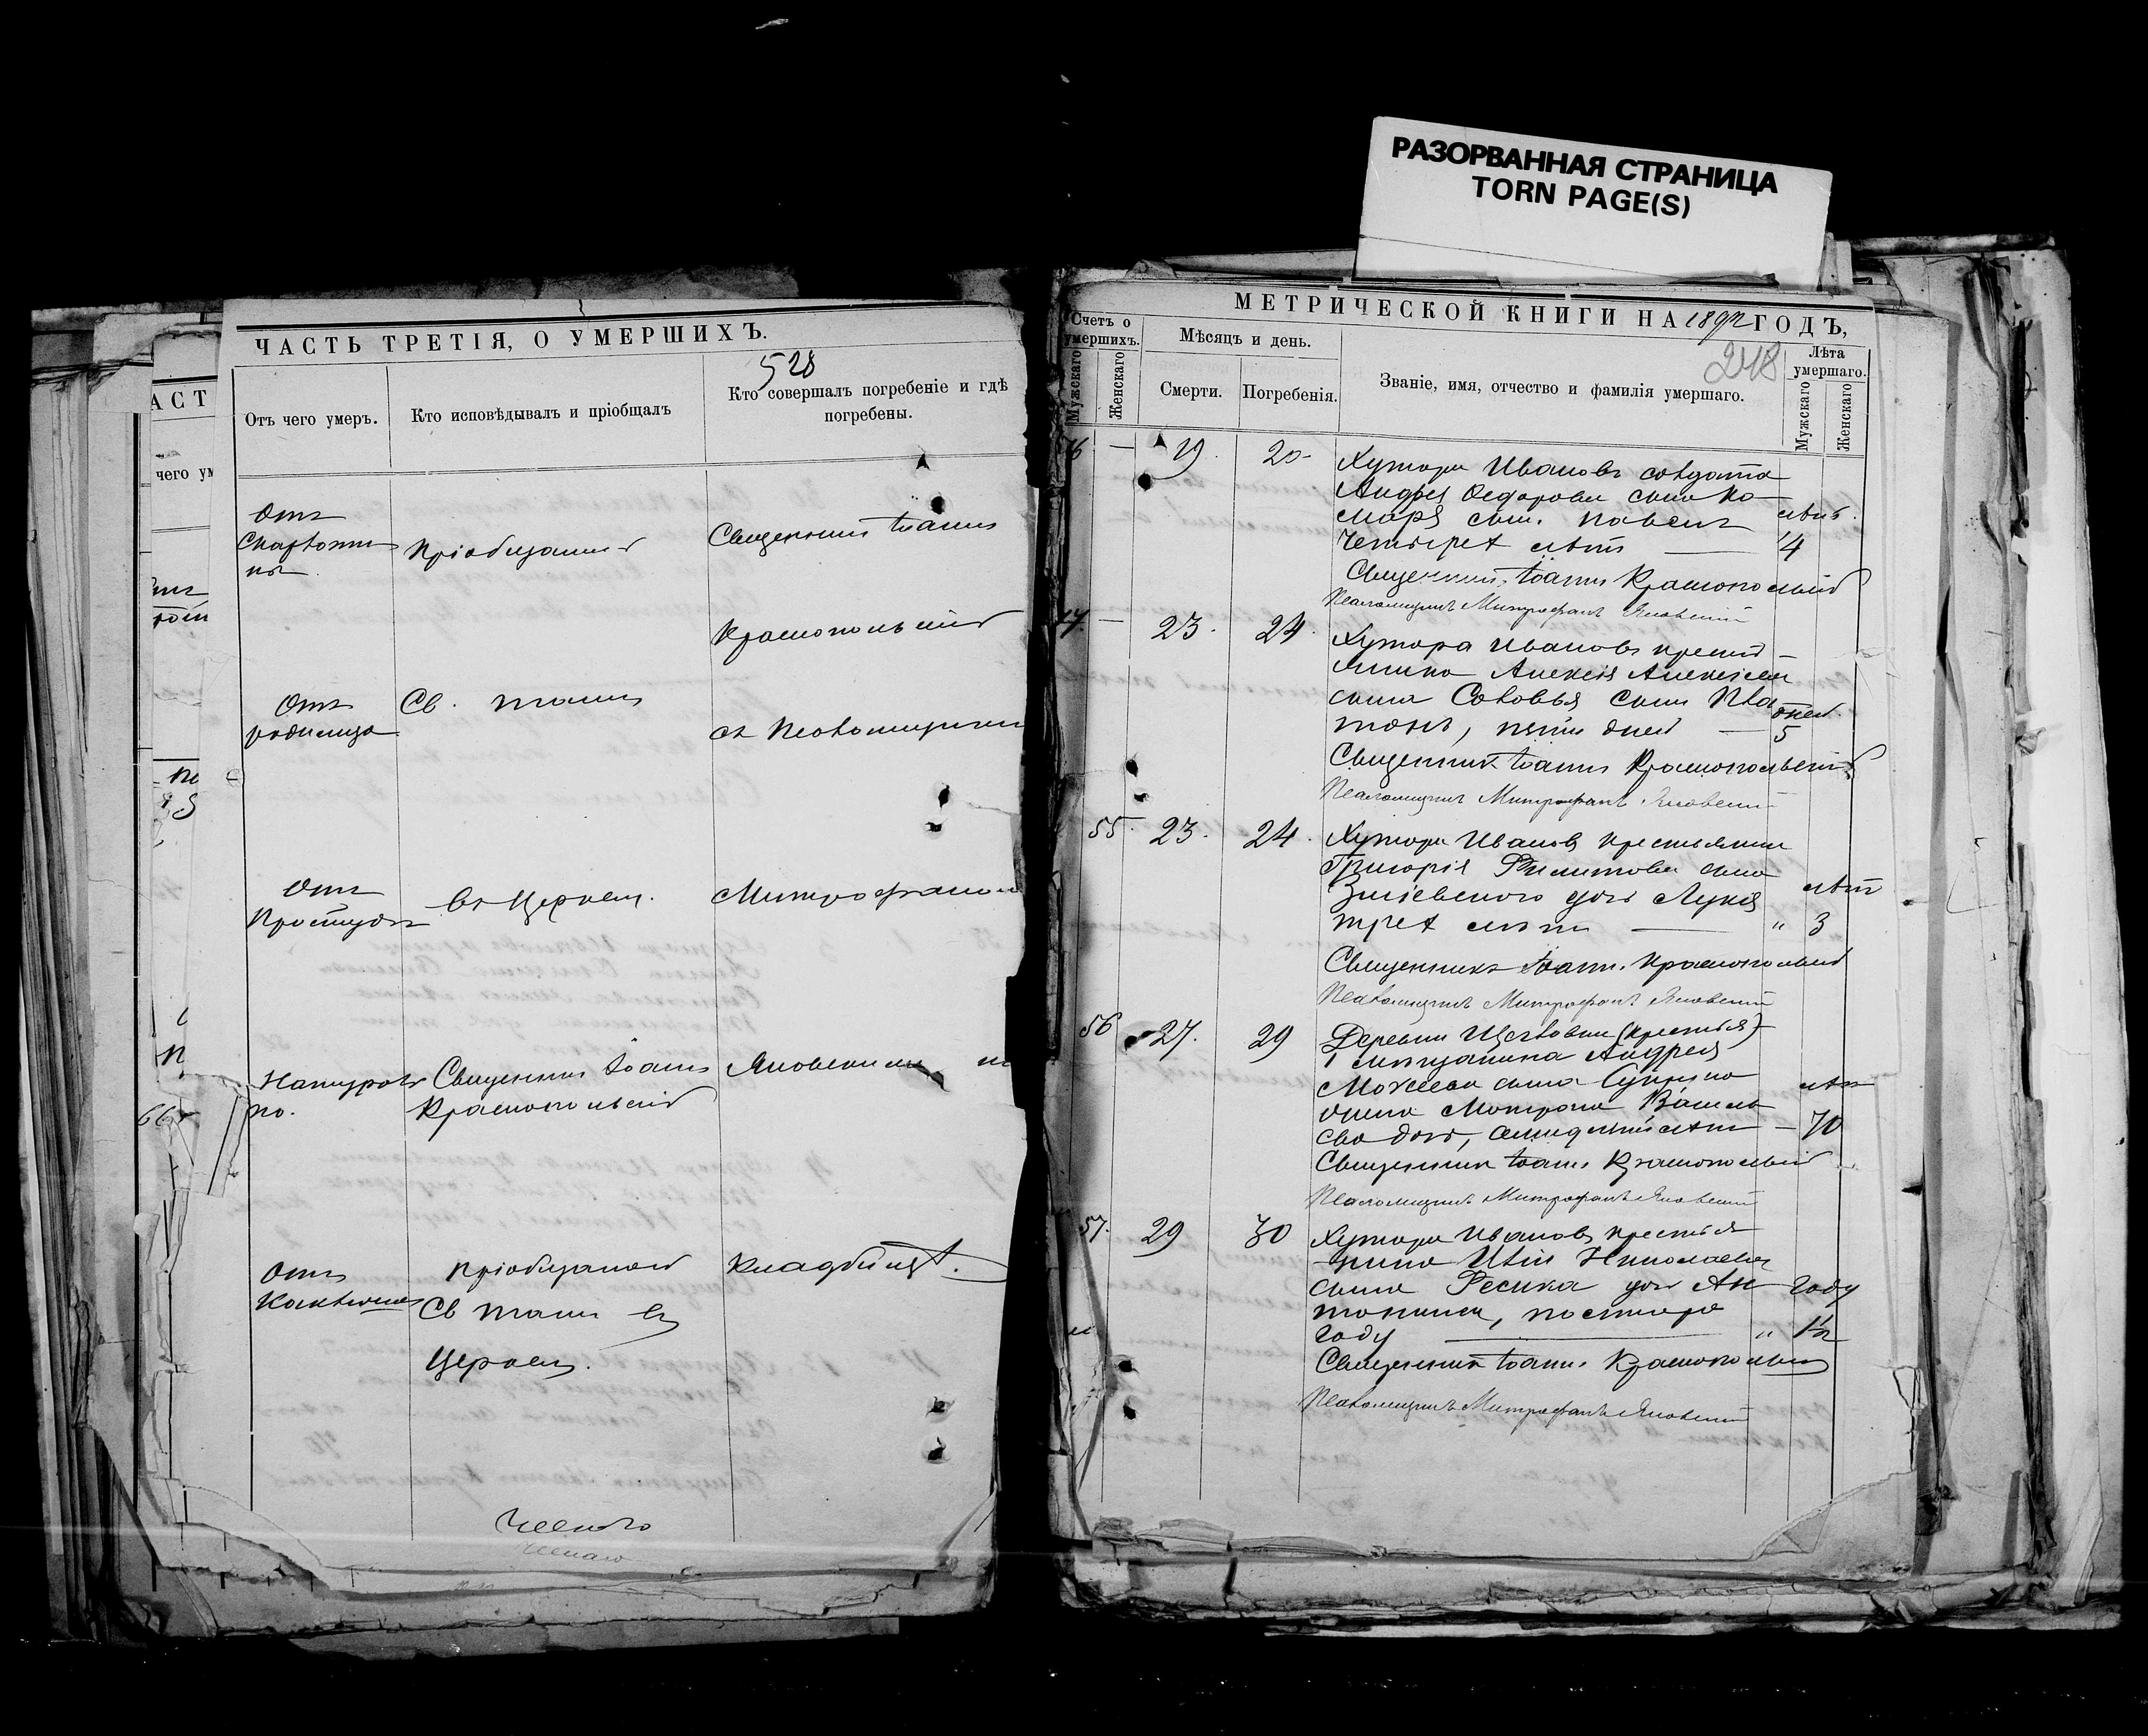 РАЗОРВАННАЯ СТРАНИЦА
TORN PAGE(S)
ЧАСТЬ ТРЕТІЯ, О УМЕРШИХЪ.
528
Отъ чего умеръ.
Кто исповѣдывалъ и пріобщалъ
Кто совершалъ погребеніе и гдѣ
погребены.
Отъ
Скарлати
ны
Пріобщался
Священникъ Іоаннъ
Краснопольскій
Отъ
родимца
Св. Таинъ
съ Псаломщикомъ
Отъ
Простуды
въ Церкви.
Митрофаном
Натураль
но.
Священникъ Іоаннъ
Краснопольскій
Яновскимъ на
Отъ
Коклюша
Пріобщался
Св Таинъ въ
Церкви.
Кладбищѣ.
МЕТРИЧЕСКОЙ КНИГИ НА 1892 ГОДЪ,
248
Счетъ о
умершихъ.
Мужскаго
Женскаго
Мѣсяцъ и день.
Смерти.
Погребенія.
Званіе, имя, отчество и фамилія умершаго.
Лѣта
умершаго.
Мужскаго
Женскаго
— 19. 20
Хутора Ивановъ солдата
Андрея Федорова сына Ко
маря сынъ Павелъ лѣтъ.
четырех лѣтъ — 4
Священникъ Іоаннъ Краснопольскій
Псаломщикъ Митрофанъ Яновскій
— 23. 24.
Хутора Ивановъ кресть
янина Алексія Алексіева
сына Соловья сынъ Пла
тонъ, пяти дней — дней. 5
Священникъ Іоаннъ Краснопольскій
Псаломщикъ Митрофанъ Яновскій
55. 23. 24.
Хутора Ивановъ крестьянина
Григорія Филипова сына
дочь Лукія лѣтъ
трех лѣтъ — " 3
Священникъ Іоаннъ Краснопольскій
Псаломщикъ Митрофанъ Яновскій
56 27. 29
Деревни (крестья)
мѣщанина Андрея
сына лѣтъ
Матрона Василь
ева дочь, семидесяти лѣтъ — 70
Священникъ Іоаннъ Краснопольскій
Псаломщикъ Митрофанъ Яновскій
57. 29 30
Хутора Ивановъ крестья
нина Иліи Николаева
сына дочь Ан году
тонина, полтора
году — " 1½
Священникъ Іоаннъ Краснопольскій
Псаломщикъ Митрофанъ Яновскій